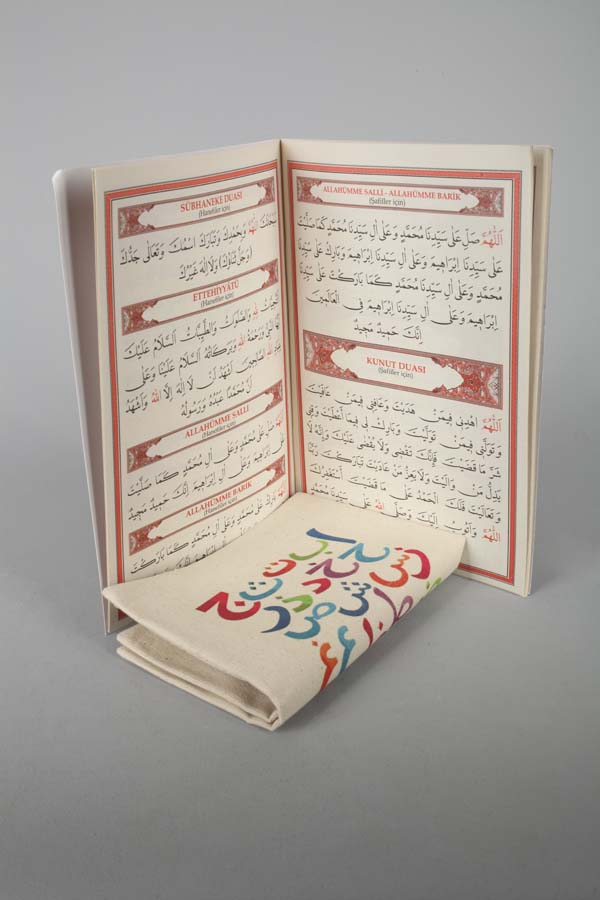 SÜBHANEKE DUASI
(Hanefiler için)
اللّٰهُمَّ وَبِحَمْدِكَ وَتَبَارَكَ اسْمُكَ وَتَعَالٰى جَدُّكَ
(وَجَلَّ ثَنَاؤُكَ) وَلَا اِلٰهَ غَيْرُكَ
ETTEHIYYÂTÜ
(Hanefiler için)
لِلّٰهِ وَالصَّلَوَاتُ وَالطَّيِّبَاتُ اَلسَّلَامُ عَلَيْكَ
النَّبِيُّ وَرَحْمَةُ اللّٰهِ وَبَرَكَاتُهُ اَلسَّلَامُ عَلَيْنَا وَعَلٰى
اللّٰهِ الصَّالِحِينَ اَشْهَدُ اَنْ لَا اِلٰهَ اِلَّا اللّٰهُ وَاَشْهَدُ
اَنَّ مُحَمَّدًا عَبْدُهُ وَرَسُولُهُ
ALLAHÜMME SALLİ
(Hanefiler için)
صَلِّ عَلٰى مُحَمَّدٍ وَعَلٰى اٰلِ مُحَمَّدٍ كَمَا صَلَّيْتَ
عَلٰى اِبْرَاهِيمَ وَعَلٰى اٰلِ اِبْرَاهِيمَ اِنَّكَ حَمِيدٌ مَجِيدٌ
ALLAHÜMME BARİK
(Hanefiler için)
بَارِكْ عَلٰى مُحَمَّدٍ وَعَلٰى اٰلِ مُحَمَّدٍ كَمَا بَارَكْتَ
ALLAHÜMME SALLİ - ALLAHÜMME BARİK
(Şafiiler için)
اَللّٰهُمَّ صَلِّ عَلٰى سَيِّدِنَا مُحَمَّدٍ وَعَلٰى اٰلِ سَيِّدِنَا مُحَمَّدٍ كَمَا صَلَّيْتَ
عَلٰى سَيِّدِنَا اِبْرَاهِيمَ وَعَلٰى اٰلِ سَيِّدِنَا اِبْرَاهِيمَ وَبَارِكْ عَلٰى سَيِّدِنَا
مُحَمَّدٍ وَعَلٰى اٰلِ سَيِّدِنَا مُحَمَّدٍ كَمَا بَارَكْتَ عَلٰى سَيِّدِنَا
اِبْرَاهِيمَ وَعَلٰى اٰلِ سَيِّدِنَا اِبْرَاهِيمَ فِي الْعَالَمِينَ
اِنَّكَ حَمِيدٌ مَجِيدٌ
KUNUT DUASI
(Şafiiler için)
اَللّٰهُمَّ اهْدِنِي فِيمَنْ هَدَيْتَ وَعَافِنِي فِيمَنْ عَافَيْتَ
وَتَوَلَّنِي فِيمَنْ تَوَلَّيْتَ وَبَارِكْ لِي فِيمَا اَعْطَيْتَ وَقِنِي
شَرَّ مَا قَضَيْتَ فَاِنَّكَ تَقْضِي وَلَا يُقْضٰى عَلَيْكَ وَاِنَّهُ لَا
يَذِلُّ مَنْ وَالَيْتَ وَلَا يَعِزُّ مَنْ عَادَيْتَ تَبَارَكْتَ رَبَّنَا
وَتَعَالَيْتَ فَلَكَ الْحَمْدُ عَلٰى مَا قَضَيْتَ اَسْتَغْفِرُكَ
اللّٰهُمَّ وَاَتُوبُ اِلَيْكَ وَصَلَّى اللّٰهُ عَلٰى سَيِّدِنَا مُحَمَّدٍ